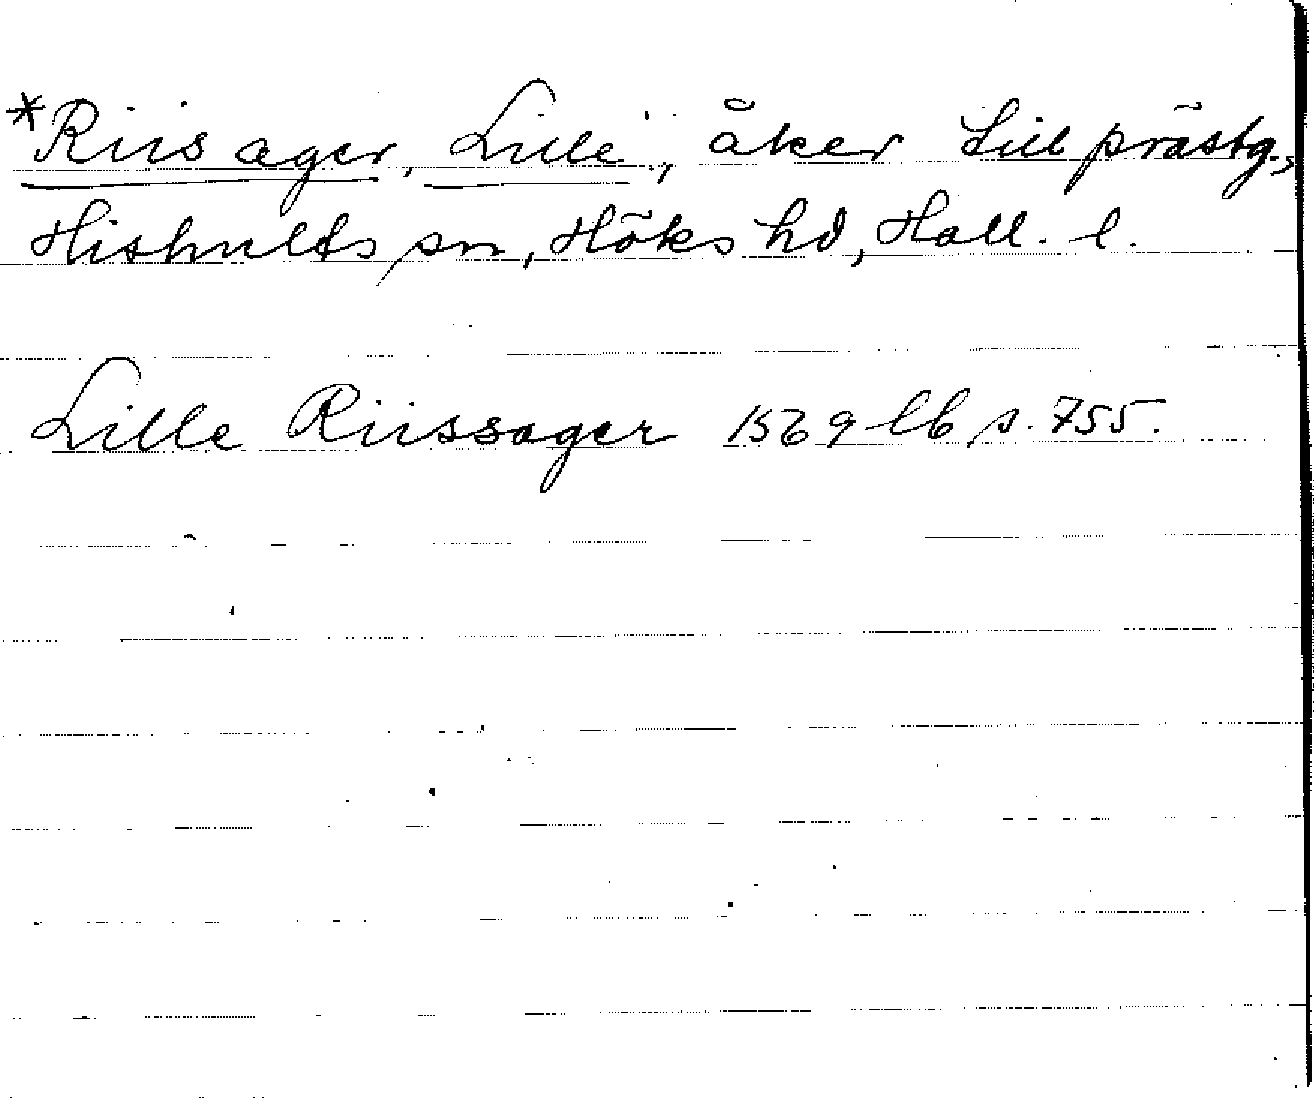 *Riisager, Lille, åker till prästg.,
Hishults sn, Höks hd, Hall. l.
Lille Riissager 1569 lb s. 755.